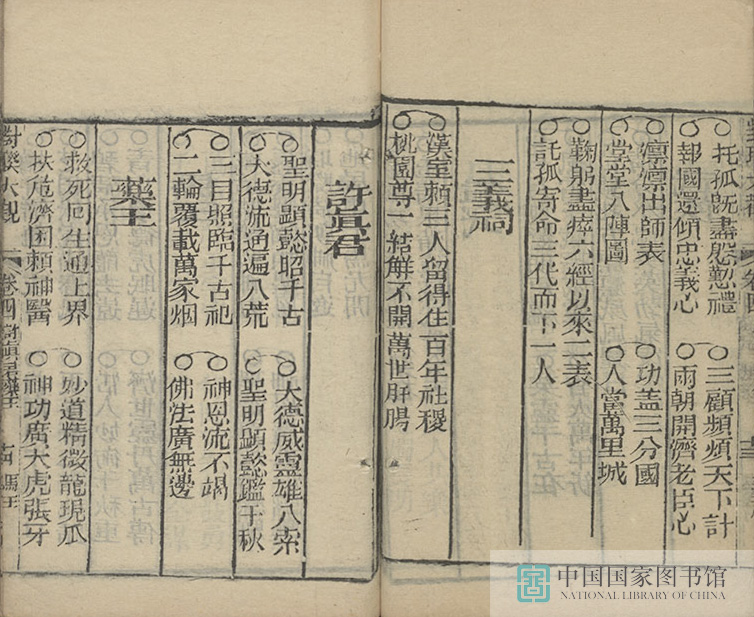 托孤既盡慇懃禮
三顧頻煩天下計
報國還傾忠義心
兩朝開濟老臣心
凛凛出師表
功蓋三分國
堂堂八陣圖
人當萬里城
鞠躬盡瘁六經以來二表
託孤寄命三代而下一人
三義祠
漢室賴三人留得住百年社稷
桃園尊一結解不開萬世肝腸
許真君
聖明顯懿昭千古
大德威靈雄八索
大德流通遍八荒
聖明顯懿鑑千秋
三目照臨千古祀
神恩流不竭
二輪覆載萬家烟
佛法廣無邊
藥王
救死回生通上界
妙道精微龍現瓜
扶危濟困賴神醫
神功廣大虎張牙
對聯大觀
卷四
中国国家图书馆
NATIONAL LIBRARY OF CHINA